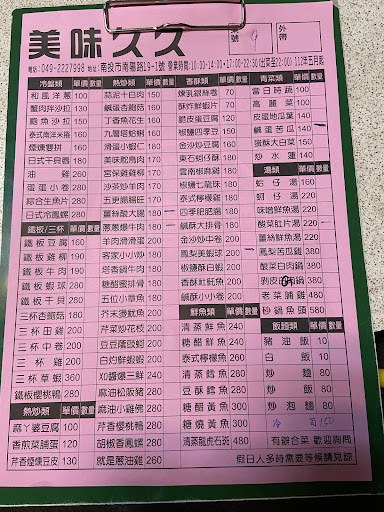 美味久久
桌號 9
外帶
電話:049-2227998 地址:南投市南陽路19-1號 營業時間:10:00-14:00•17:00-22:30(出菜至22:00) 112年五月起
冷盤類 單價 數量
和風洋蔥 100
蟹肉拌沙拉 130
鮑魚沙拉 150
泰式南洋米捲 160
煙燻雙拼 160
日式干貝唇 180
油雞 260
蛋蛋小卷 280
綜合生魚片 280
日式冷鳳螺 280
鐵板/三杯 單價 數量
鐵板豆腐 160
鐵板雞柳 190
鐵板牛肉 190
鐵板蝦球 280
鐵板干貝 280
三杯杏鮑菇 180
三杯田雞 200
三杯中卷 200
三杯雞 200
三杯草蝦 360
鐵板櫻桃鴨 280
熱炒類 單價 數量
麻丫婆豆腐 100
香煎菜脯蛋 120
芹香煙燻豆皮 130
熱炒類 單價 數量
蒜泥卡白肉 150
鹹蛋杏鮑菇 160
丁香魚花生 160
九層塔蛤蜊 160
滑蛋小蝦仁 180
美味駝鳥肉 180
宮保雞雞柳 170
沙茶炒羊肉 180
五更腸腸旺 170
薑絲酸大腸 180
蔥蔥爆牛肉 180
羊肉滑滑蛋 200
客家小小炒 180
塔香鍋牛肉 180
糖醋蜜排骨 180
五位小章魚 180
芥末燙魷魚 200
芹菜炒花枝 200
豆豆蔭豉蚵 200
白灼鮮蝦蝦 200
XO醬爆三鮮 240
麻油松阪豬 260
麻油小雞佛 280
芹香櫻桃鴨 280
胡椒香鳳螺 280
就是蔥油雞 260
香酥類 單價 數量
煉乳銀絲卷 70
酥炸鮮蝦片 70
脆皮蛋豆腐 120
椒鹽四季豆 150
金沙炒豆腐 160
東石蚵仔酥 180
雲南椒麻雞 180
椒鹽七龍珠 180
泰式檸檬雞 180
四季肥肥腸 180
鹹酥大排骨 180
金沙炒中卷 200
鳳梨美蝦球 200
椒鹽酥白蝦 200
香酥肚魠魚 200
鹹酥小小卷 200
鮮魚類 單價 數量
清蒸鮮魚 240
糖醋鮮魚 240
泰式檸檬魚 260
清蒸鱈魚 280
豆酥鱈魚 280
糖醋黃魚 300
糖燒黃魚 300
清蒸龍虎石斑 480
青菜類 單價 數量
當日時蔬 100
高麗菜 100
皮蛋地瓜葉 140
鹹蛋苦瓜 140
蛋酥大白菜 150
炒水蓮 140
湯類 單價 數量
蛤仔湯 160
蚵仔湯 160
味噌鮮魚湯 220
酸菜肚片湯 220
薑絲鮮魚湯 220
鳳梨苦瓜雞 380
酸菜白肉鍋 380
老菜脯雞 480
砂鍋魚頭 580
飯麵類 單價 數量
豬油飯 10
白飯 10
炒麵 80
炒飯 80
炒泡麵 80
有辦合菜 歡迎詢問
假日人多時需要等候請見諒